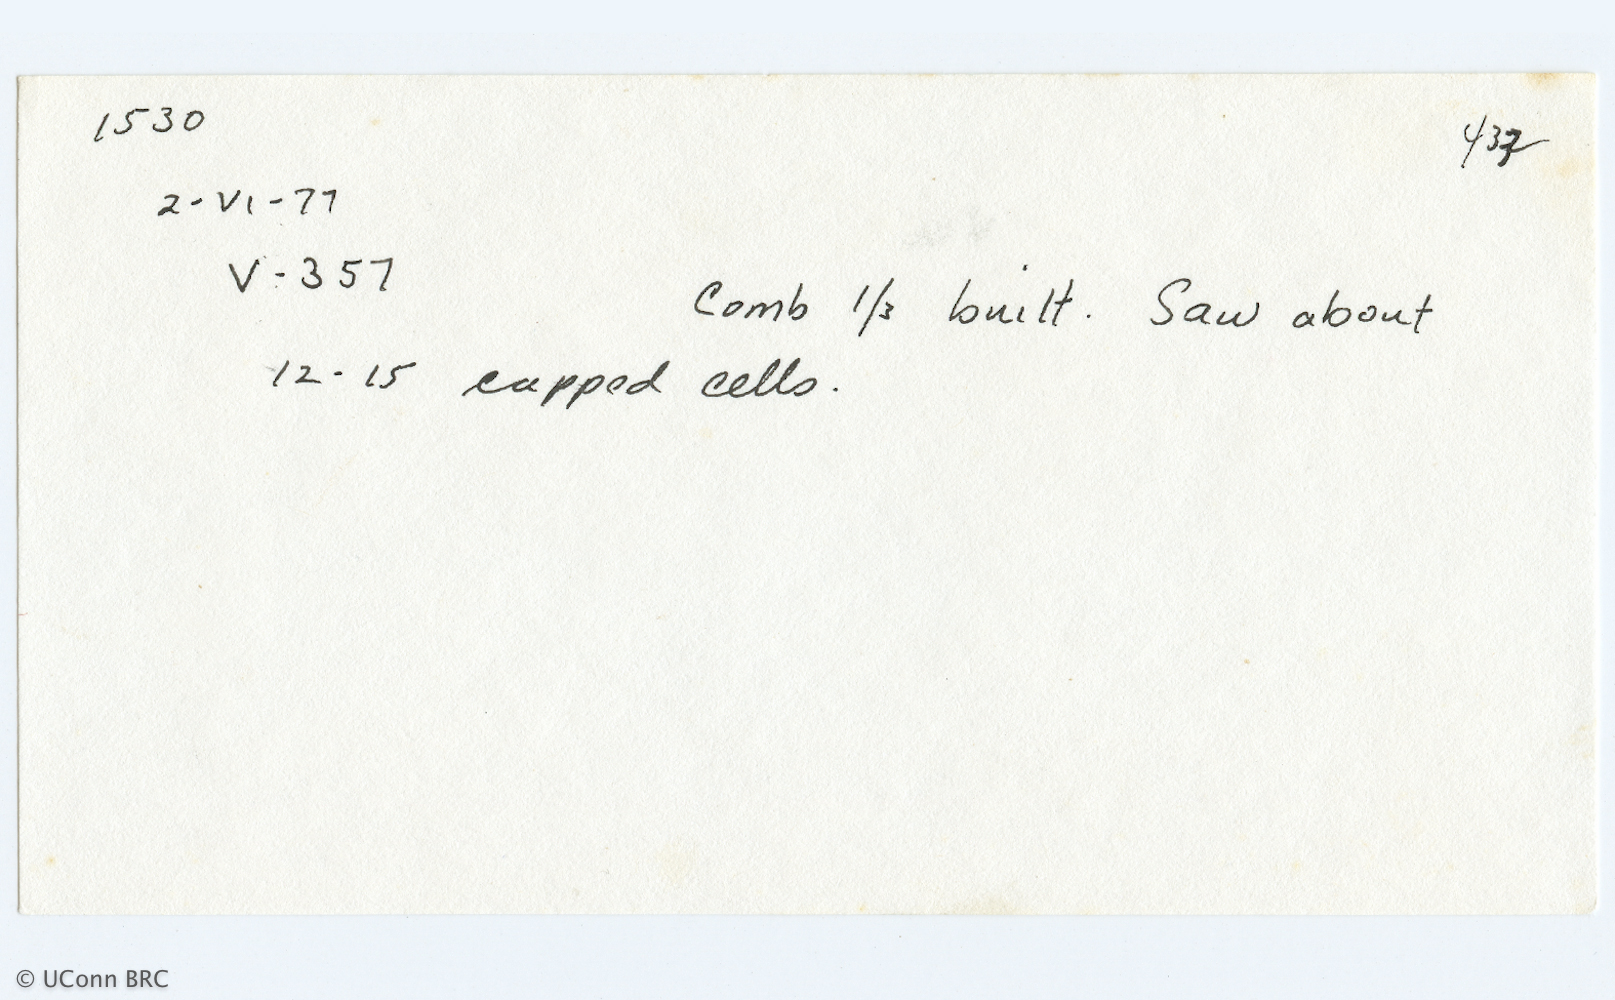 1530
2-VI-77
V-357
Comb 1/3 built. Saw about
12-15 capped cells.
© UConn BRC